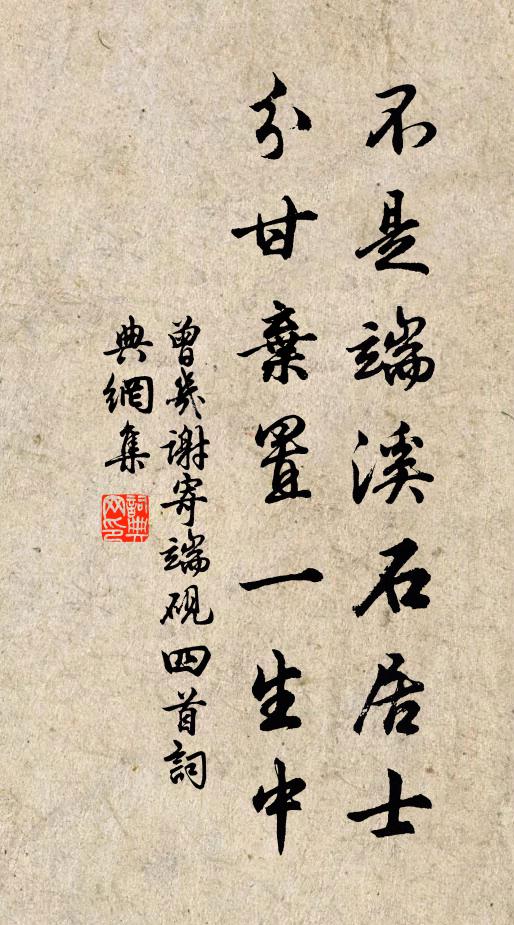 不是端溪石居士
分甘棄置一生中
曾幾謝寄端硯四首詞
典網集
詞典網印